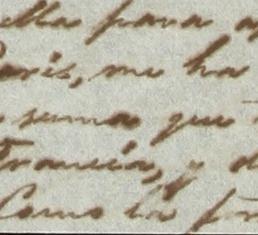 ella para a
Paris, me ha
suma que
Francia, y d
Como la for